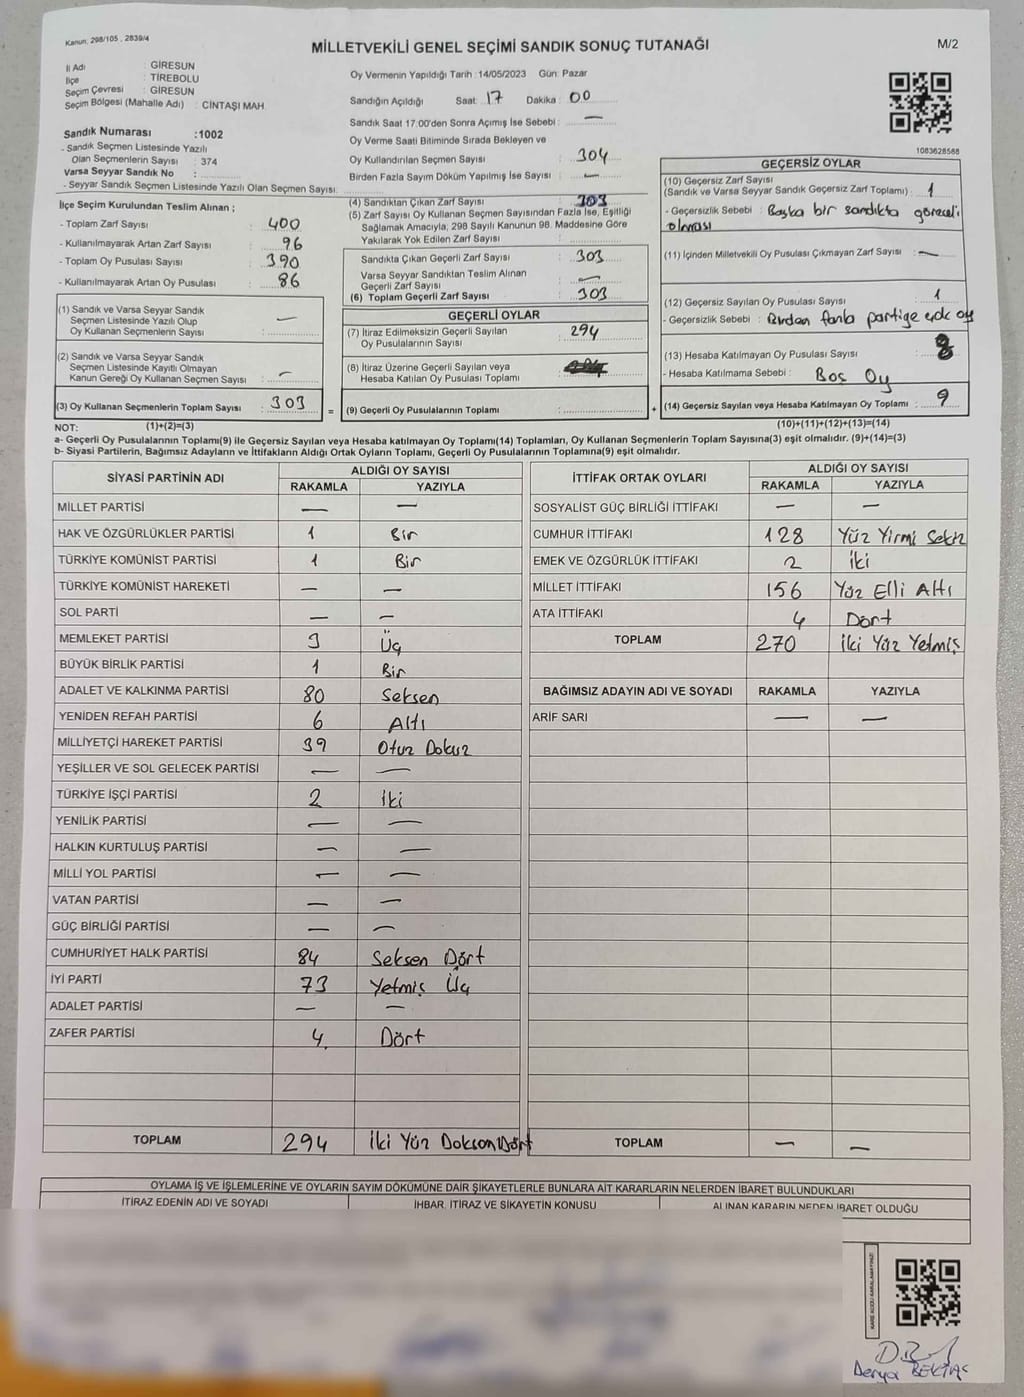 Kanun, 298/105 , 2839/4
MİLLETVEKİLİ GENEL SEÇİMİ SANDIK SONUÇ TUTANAĞI
M/2
İl Adı : GİRESUN
İlçe : TİREBOLU
Seçim Çevresi : GİRESUN
Seçim Bölgesi (Mahalle Adı) : CİNTAŞI MAH.
Sandık Numarası : 1002
- Sandık Seçmen Listesinde Yazılı
Olan Seçmenlerin Sayısı : 374
Varsa Seyyar Sandık No :
- Seyyar Sandık Seçmen Listesinde Yazılı Olan Seçmen Sayısı:
Oy Vermenin Yapıldığı Tarih :14/05/2023 Gün: Pazar
Sandığın Açıldığı Saat: 17 Dakika : 00
Sandık Saat 17:00'den Sonra Açımış İse Sebebi : —
Oy Verme Saati Bitiminde Sırada Bekleyen ve
Oy Kullandırılan Seçmen Sayısı : 304
Birden Fazla Sayım Döküm Yapılmış İse Sayısı : —
1083628588
İlçe Seçim Kurulundan Teslim Alınan ;
- Toplam Zarf Sayısı : 400
- Kullanılmayarak Artan Zarf Sayısı : 96
- Toplam Oy Pusulası Sayısı : 390
- Kullanılmayarak Artan Oy Pusulası : 86
(1) Sandık ve Varsa Seyyar Sandık
Seçmen Listesinde Yazılı Olup
Oy Kullanan Seçmenlerin Sayısı : —
(2) Sandık ve Varsa Seyyar Sandık
Seçmen Listesinde Kayıtlı Olmayan
Kanun Gereği Oy Kullanan Seçmen Sayısı : —
(3) Oy Kullanan Seçmenlerin Toplam Sayısı : 303
(4) Sandıktan Çıkan Zarf Sayısı : 303
(5) Zarf Sayısı Oy Kullanan Seçmen Sayısından Fazla İse, Eşitliği
Sağlamak Amacıyla, 298 Sayılı Kanunun 98. Maddesine Göre
Yakılarak Yok Edilen Zarf Sayısı :
Sandıkta Çıkan Geçerli Zarf Sayısı : 303
Varsa Seyyar Sandıktan Teslim Alınan
Geçerli Zarf Sayısı : —
(6) Toplam Geçerli Zarf Sayısı : 303
GEÇERLİ OYLAR
(7) İtiraz Edilmeksizin Geçerli Sayılan
Oy Pusulalarının Sayısı : 294
(8) İtiraz Üzerine Geçerli Sayılan veya
Hesaba Katılan Oy Pusulası Toplamı :
= (9) Geçerli Oy Pusulalarının Toplamı : +
GEÇERSİZ OYLAR
(10) Geçersiz Zarf Sayısı
(Sandık ve Varsa Seyyar Sandık Geçersiz Zarf Toplamı) : 1
- Geçersizlik Sebebi : Başka bir sandıkta görevli
olması
(11) İçinden Milletvekili Oy Pusulası Çıkmayan Zarf Sayısı : —
(12) Geçersiz Sayılan Oy Pusulası Sayısı : 1
- Geçersizlik Sebebi : Birden fazla partiye oy
(13) Hesaba Katılmayan Oy Pusulası Sayısı : 8
- Hesaba Katılmama Sebebi : Boş Oy
(14) Geçersiz Sayılan veya Hesaba Katılmayan Oy Toplamı : 9
NOT: (1)+(2)=(3) (10)+(11)+(12)+(13)=(14)
a- Geçerli Oy Pusulalarının Toplamı(9) ile Geçersiz Sayılan veya Hesaba katılmayan Oy Toplamı(14) Toplamları, Oy Kullanan Seçmenlerin Toplam Sayısına(3) eşit olmalıdır. (9)+(14)=(3)
b- Siyasi Partilerin, Bağımsız Adayların ve İttifakların Aldığı Ortak Oyların Toplamı, Geçerli Oy Pusulalarının Toplamına(9) eşit olmalıdır.
SİYASİ PARTİNİN ADI ALDIĞI OY SAYISI
RAKAMLA YAZIYLA
MİLLET PARTİSİ — —
HAK VE ÖZGÜRLÜKLER PARTİSİ 1 Bir
TÜRKİYE KOMÜNİST PARTİSİ 1 Bir
TÜRKİYE KOMÜNİST HAREKETİ — —
SOL PARTİ — —
MEMLEKET PARTİSİ 3 Üç
BÜYÜK BİRLİK PARTİSİ 1 Bir
ADALET VE KALKINMA PARTİSİ 80 Seksen
YENİDEN REFAH PARTİSİ 6 Altı
MİLLİYETÇİ HAREKET PARTİSİ 39 Otuz Dokuz
YEŞİLLER VE SOL GELECEK PARTİSİ — —
TÜRKİYE İŞÇİ PARTİSİ 2 İki
YENİLİK PARTİSİ — —
HALKIN KURTULUŞ PARTİSİ — —
MİLLİ YOL PARTİSİ — —
VATAN PARTİSİ — —
GÜÇ BİRLİĞİ PARTİSİ — —
CUMHURİYET HALK PARTİSİ 84 Seksen Dört
İYİ PARTİ 73 Yetmiş Üç
ADALET PARTİSİ — —
ZAFER PARTİSİ 4 Dört
TOPLAM 294 İki Yüz Doksan Dört
İTTİFAK ORTAK OYLARI ALDIĞI OY SAYISI
RAKAMLA YAZIYLA
SOSYALİST GÜÇ BİRLİĞİ İTTİFAKI — —
CUMHUR İTTİFAKI 128 Yüz Yirmi Sekiz
EMEK VE ÖZGÜRLÜK İTTİFAKI 2 İki
MİLLET İTTİFAKI 156 Yüz Elli Altı
ATA İTTİFAKI 4 Dört
TOPLAM 270 İki Yüz Yetmiş
BAĞIMSIZ ADAYIN ADI VE SOYADI RAKAMLA YAZIYLA
ARİF SARI — —
TOPLAM — —
OYLAMA İŞ VE İŞLEMLERİNE VE OYLARIN SAYIM DÖKÜMÜNE DAİR ŞİKAYETLERLE BUNLARA AİT KARARLARIN NELERDEN İBARET BULUNDUKLARI
İTİRAZ EDENİN ADI VE SOYADI İHBAR, İTİRAZ VE ŞİKAYETİN KONUSU ALINAN KARARIN NEDEN İBARET OLDUĞU
Derya BEKTAŞ